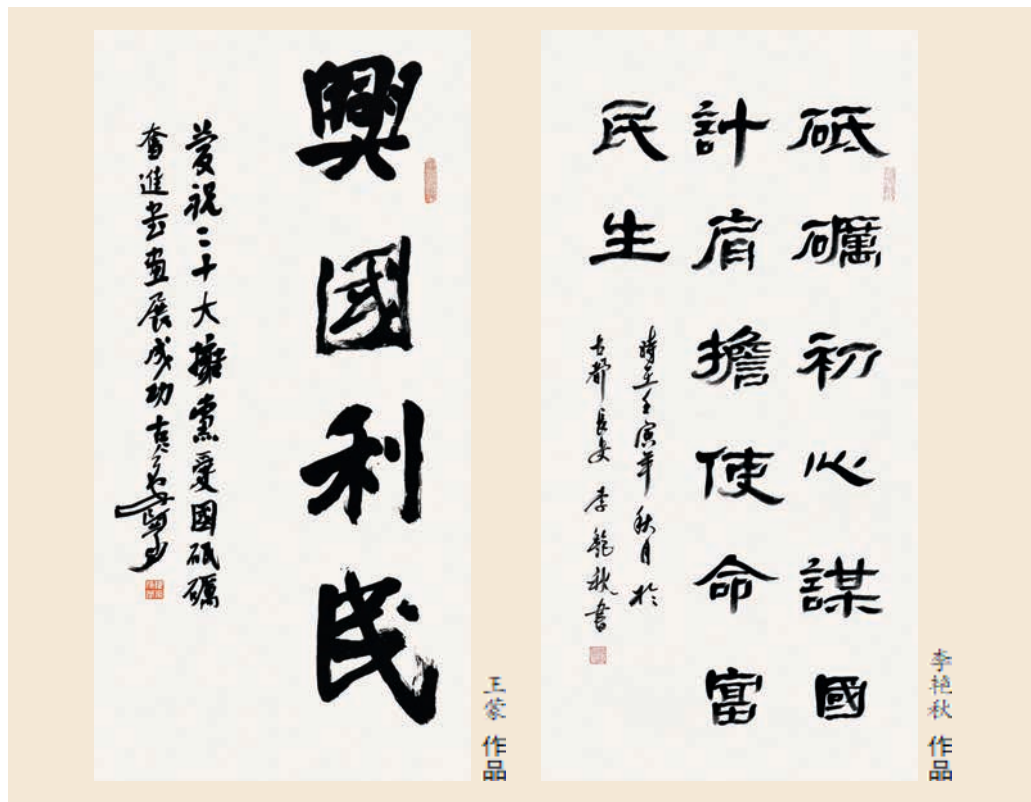 興國利民
慶祝二十大擁黨愛國砥礪
奮進書畫展成功
王蒙 作品
砥礪初心謀國
計肩擔使命富
民生
時至壬寅年秋月於
古都長安 李艶秋書
李艳秋 作品